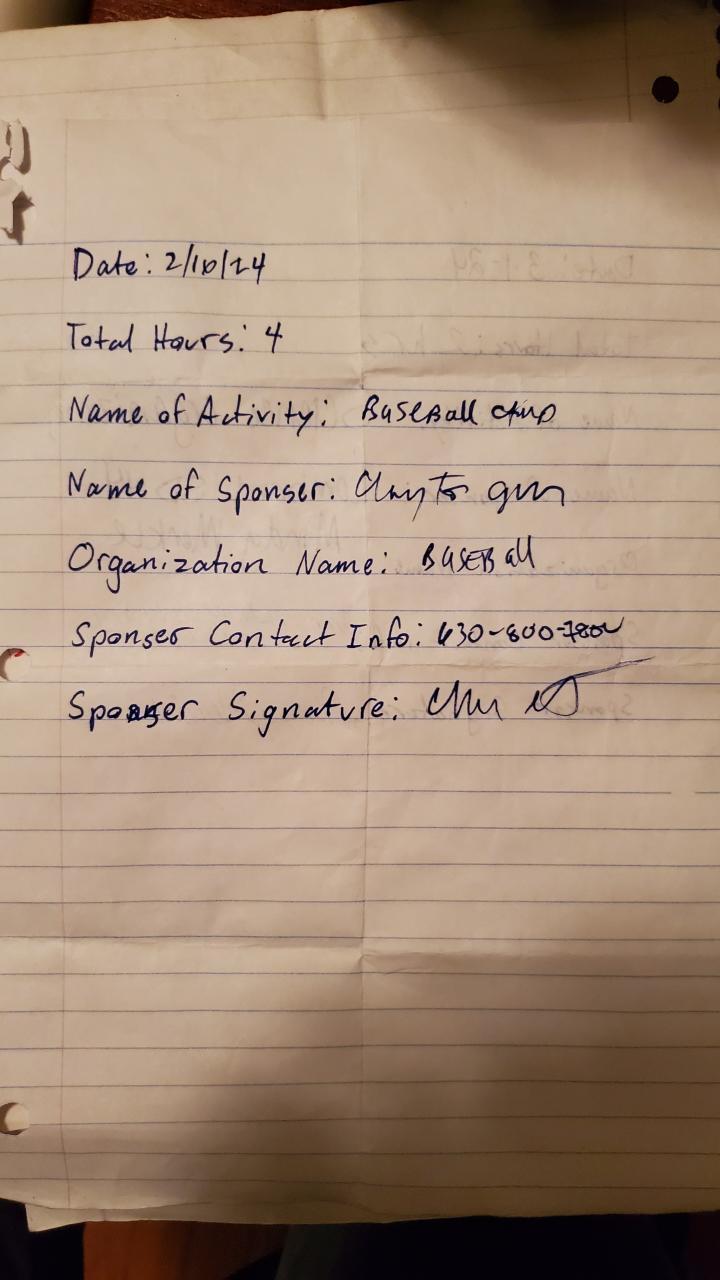 Date: 2/10/24
Total Hours: 4
Name of Activity: Baseball
Name of Sponser: Clayton
Organization Name: BASEBall
Sponser Contact Info: 630-800-780
Sponser Signature: